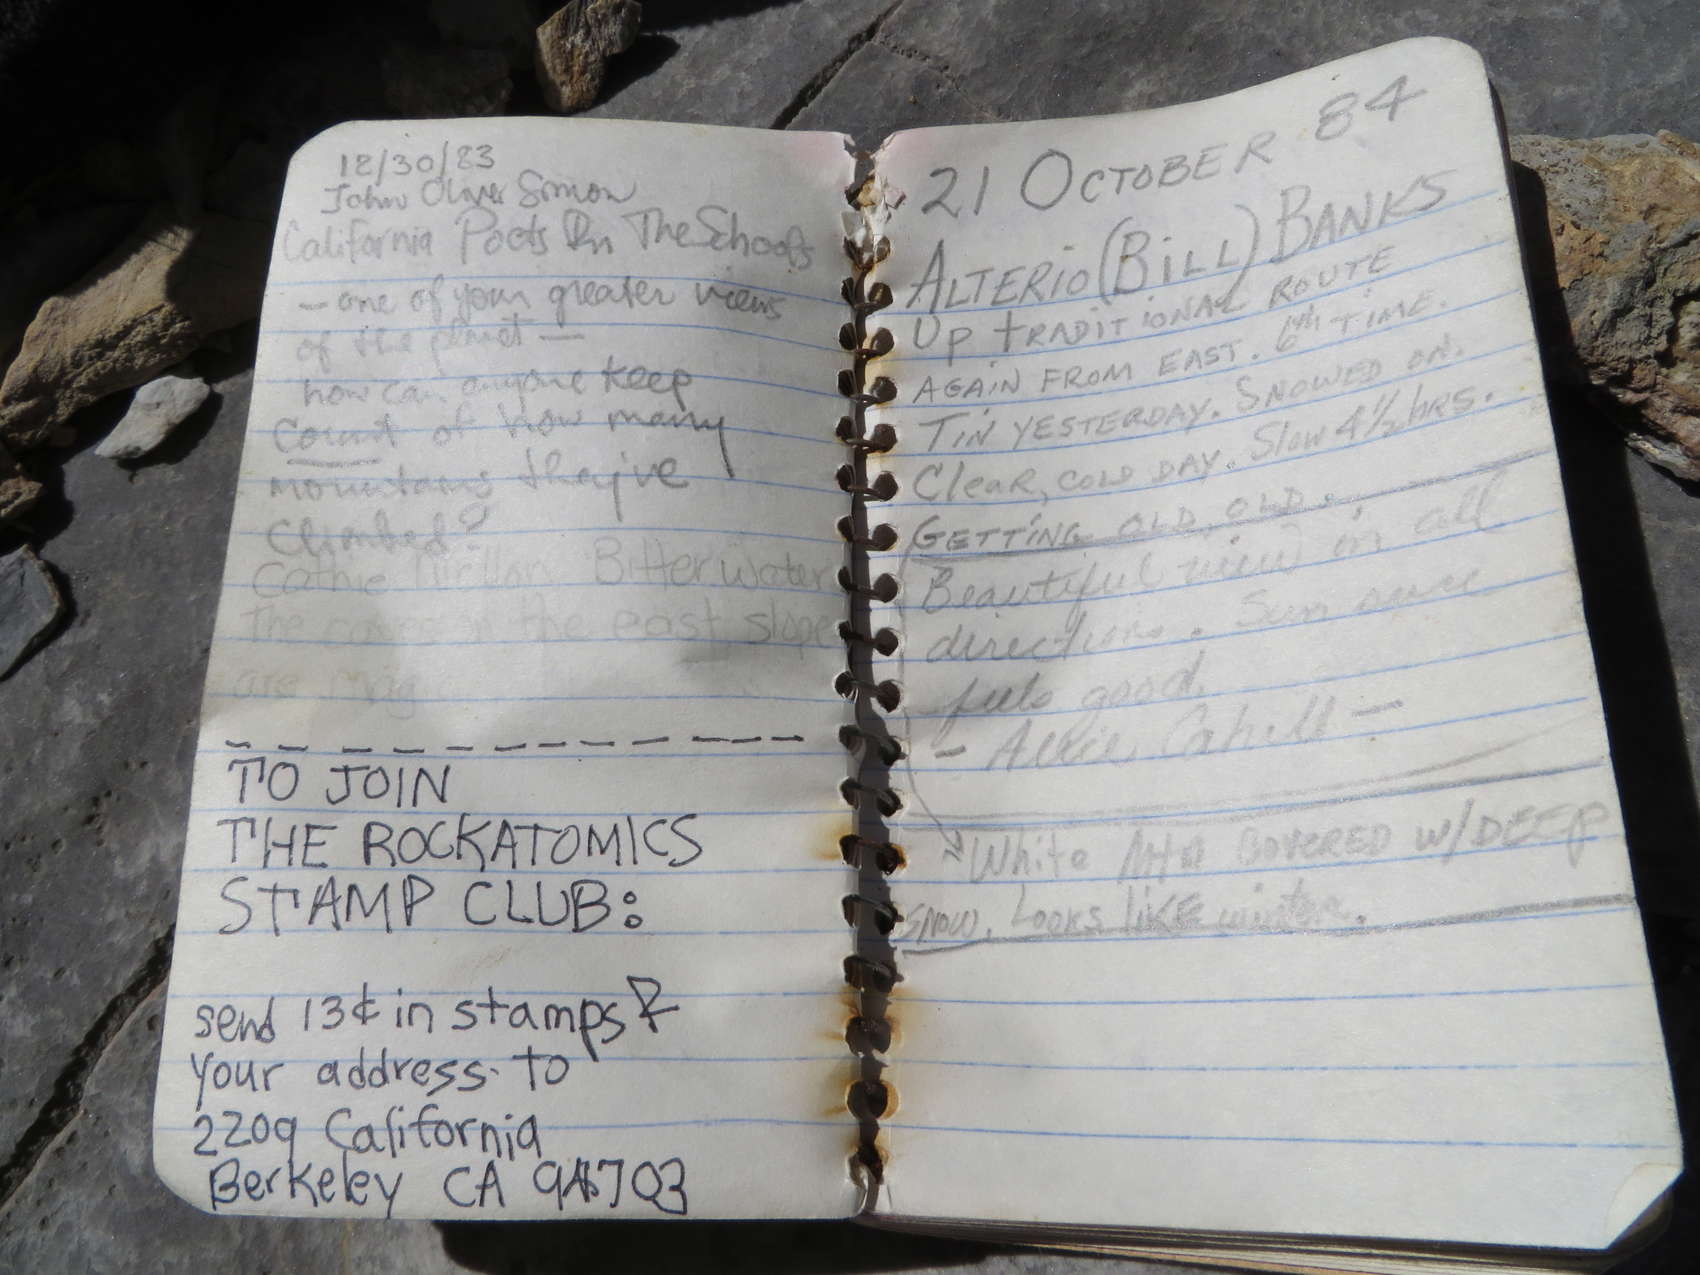 12/30/83
John Oliver Simon
California Poets In The Schools
— one of your greater views
of the planet —
how can anyone keep
count of how many
mountains they've
climbed?
Cathie Bitterwater
The on the east slope
are
TO JOIN
THE ROCKATOMICS
STAMP CLUB:
send 13¢ in stamps &
your address to
2209 California
Berkeley CA 94703
21 OCTOBER 84
ALTERIO (BILL) BANKS
UP TRADITIONAL ROUTE
AGAIN FROM EAST. 6th TIME.
TIN YESTERDAY. SNOWED ON.
Clear, COLD DAY. Slow 4 1/2 hrs.
GETTING OLD, OLD.
Beautiful view in all
directions. Sun once
feels good.
- Cahill —
White Mtn COVERED W/DEEP
SNOW. Looks LIKE winter.